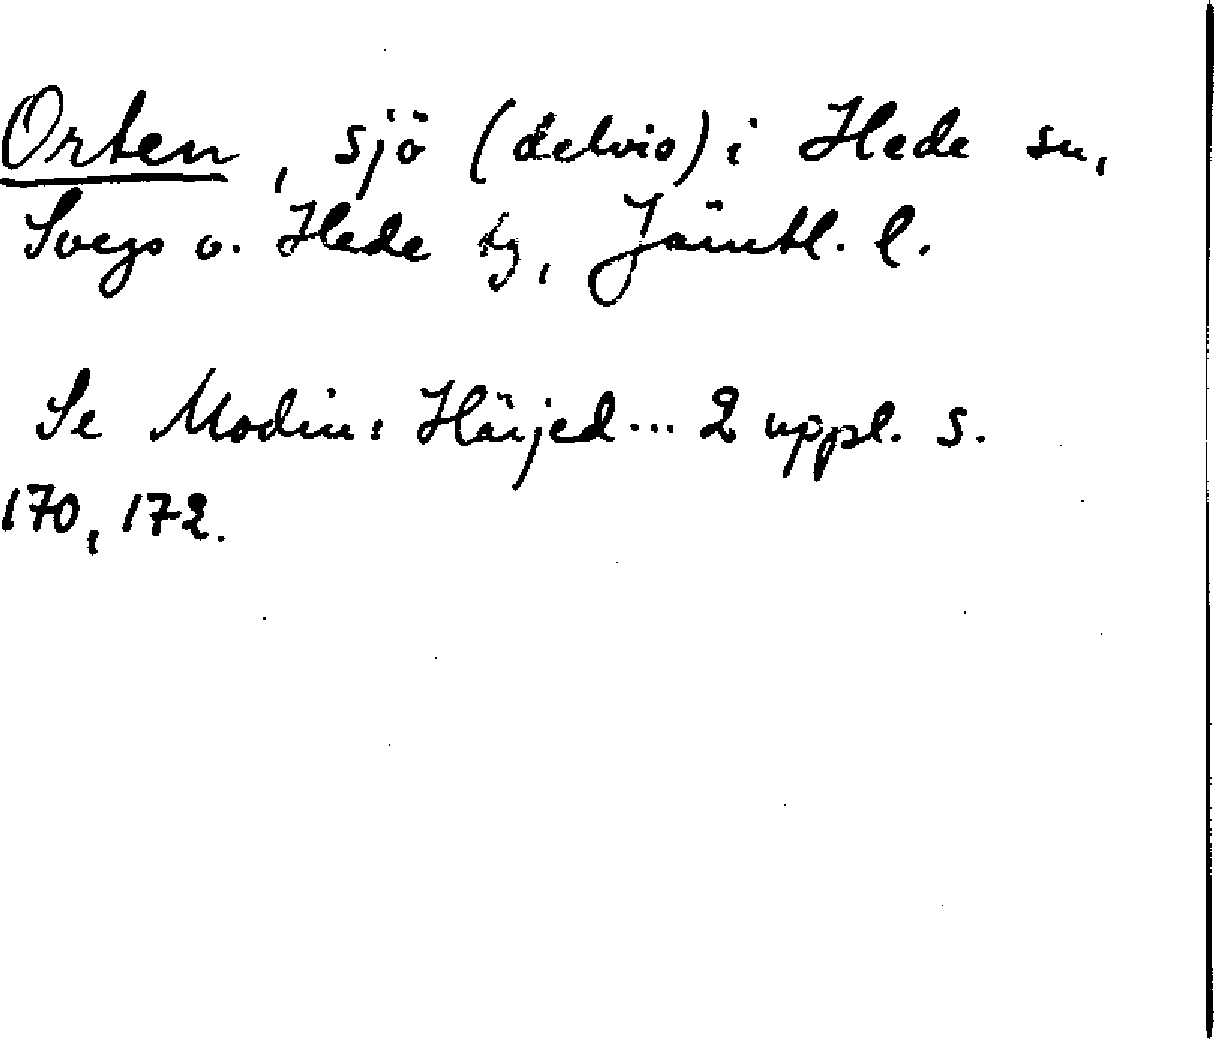 Orten, sjö (delvis) i Hede sn,
Svegs o. Hede tg, Jämtl. l.
Se Modin: Härjed... 2 uppl. s.
170, 172.